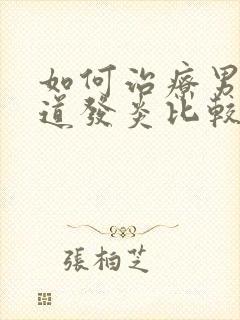 如何治療男
道發炎比較
張柏芝